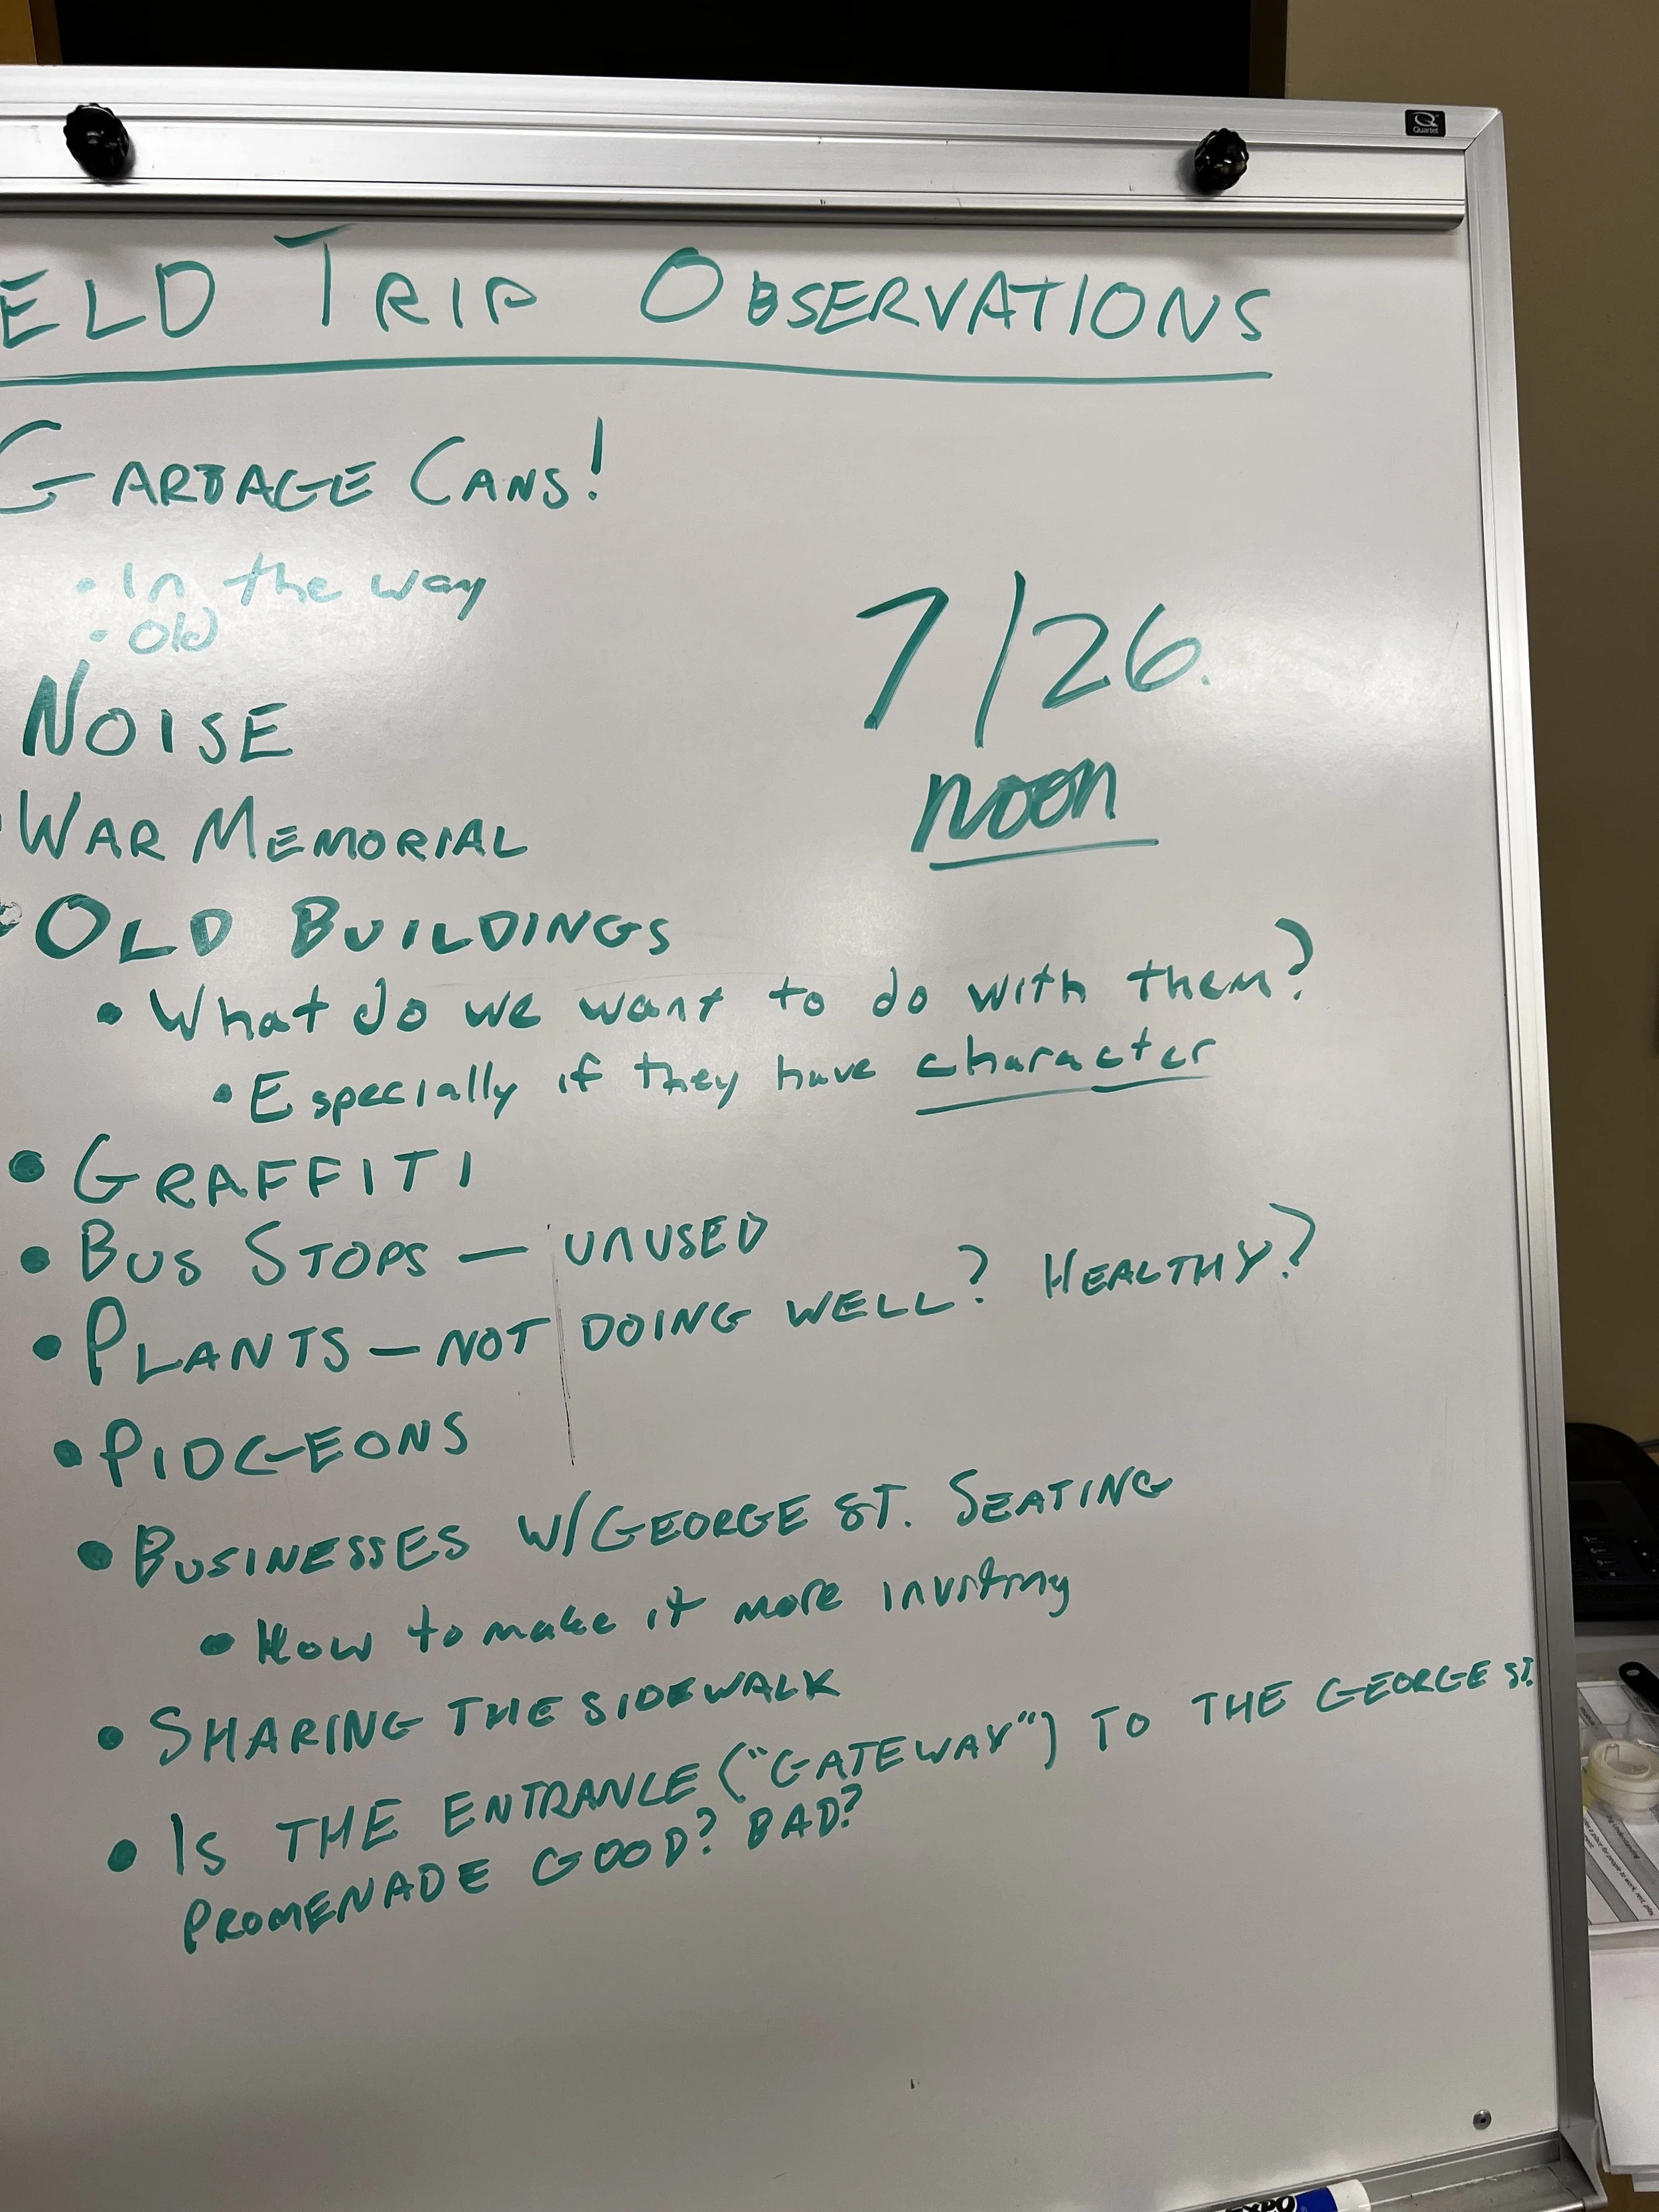 ELD TRIP OBSERVATIONS
GARBAGE CANS!
• In the way
• Old
NOISE
7/26.
noon
• WAR MEMORIAL
• OLD BUILDINGS
• What do we want to do with them?
• Especially if they have character
• GRAFFITI
• BUS STOPS — UNUSED
• PLANTS — NOT DOING WELL? HEALTHY?
• PIDGEONS
• BUSINESSES W/GEORGE ST. SEATING
• How to make it more inviting
• SHARING THE SIDEWALK
• IS THE ENTRANCE ("GATEWAY") TO THE GEORGE ST.
PROMENADE GOOD? BAD?
Quartet
EXPO